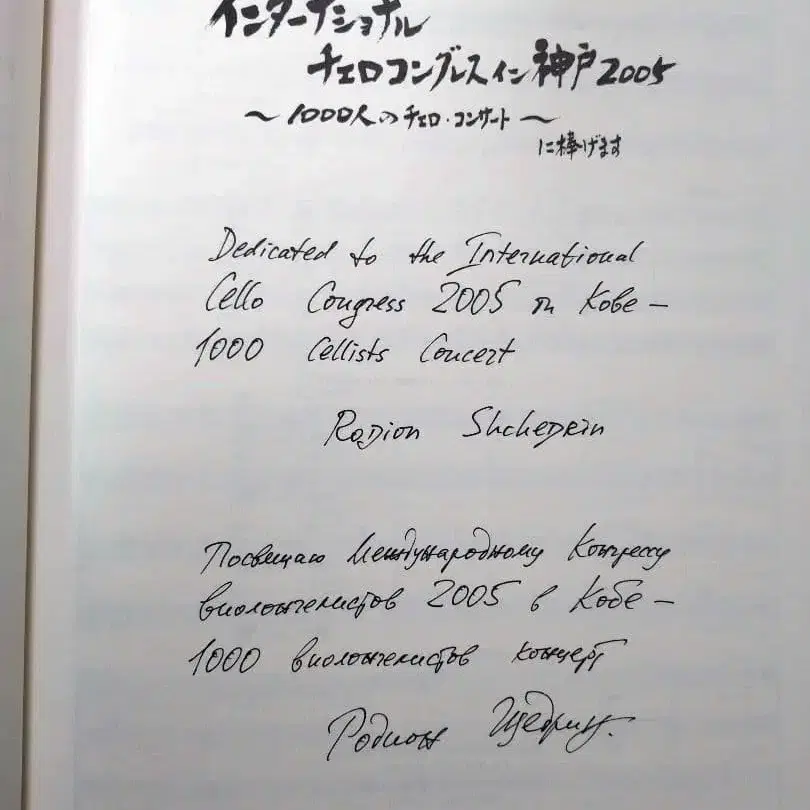 インターナショナル
チェロコングレスイン神戸2005
～1000人のチェロ・コンサート～
に捧げます
Dedicated to the International
Cello Congress 2005 in Kobe –
1000 Cellists Concert
Rodion Shchedrin
Посвящаю Международному Конгрессу
виолончелистов 2005 в Кобе –
1000 виолончелистов концерт
Родион Щедрин.